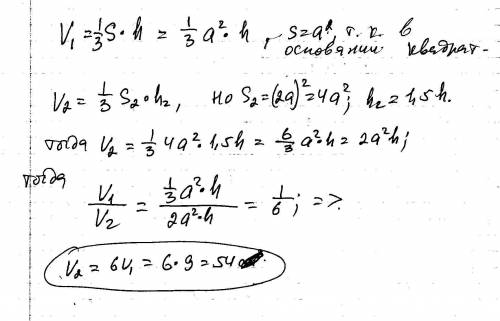 V₁ = 1/3 S · h = 1/3 a² · h , S = a², т. к. в
основании квадрат.
V₂ = 1/3 S₂ · h₂, но S₂ = (2a)² = 4a²; h₂ = 1,5 h.
тогда V₂ = 1/3 4a² · 1,5h = 6/3 a² · h = 2a²h;
тогда
V₁/V₂ = (1/3 a² · h)/(2a² · h) = 1/6 ; =>.
V₂ = 6V₁ = 6 · 9 = 54